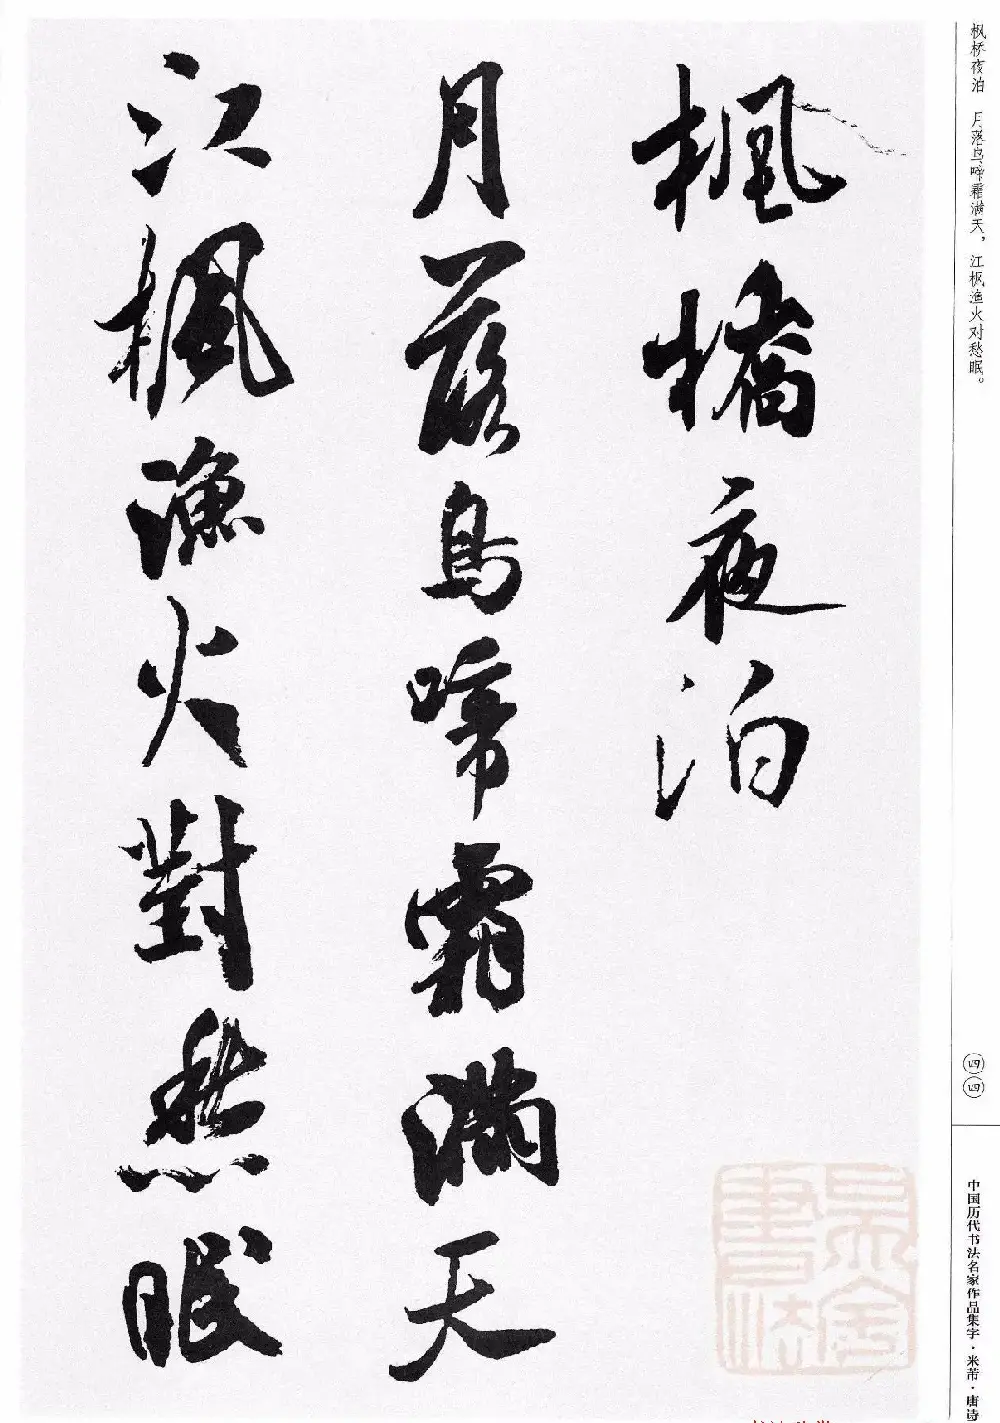 枫桥夜泊　月落乌啼霜满天，江枫渔火对愁眠。
四四
中国历代书法名家作品集字·米芾·唐诗
楓橋夜泊
月落烏啼霜滿天
江楓漁火對愁眠